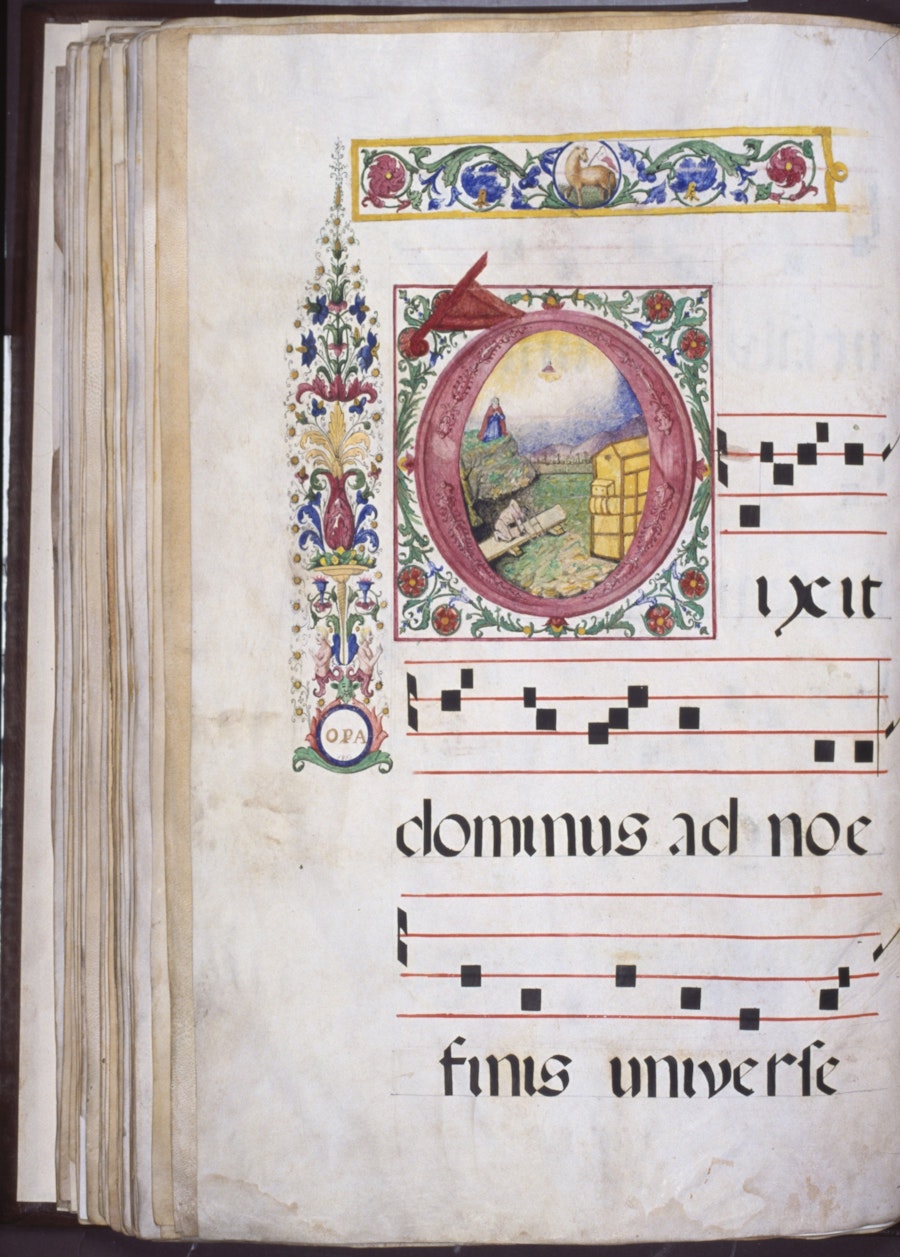 Dixit
OPA
dominus ad noe
finis universe